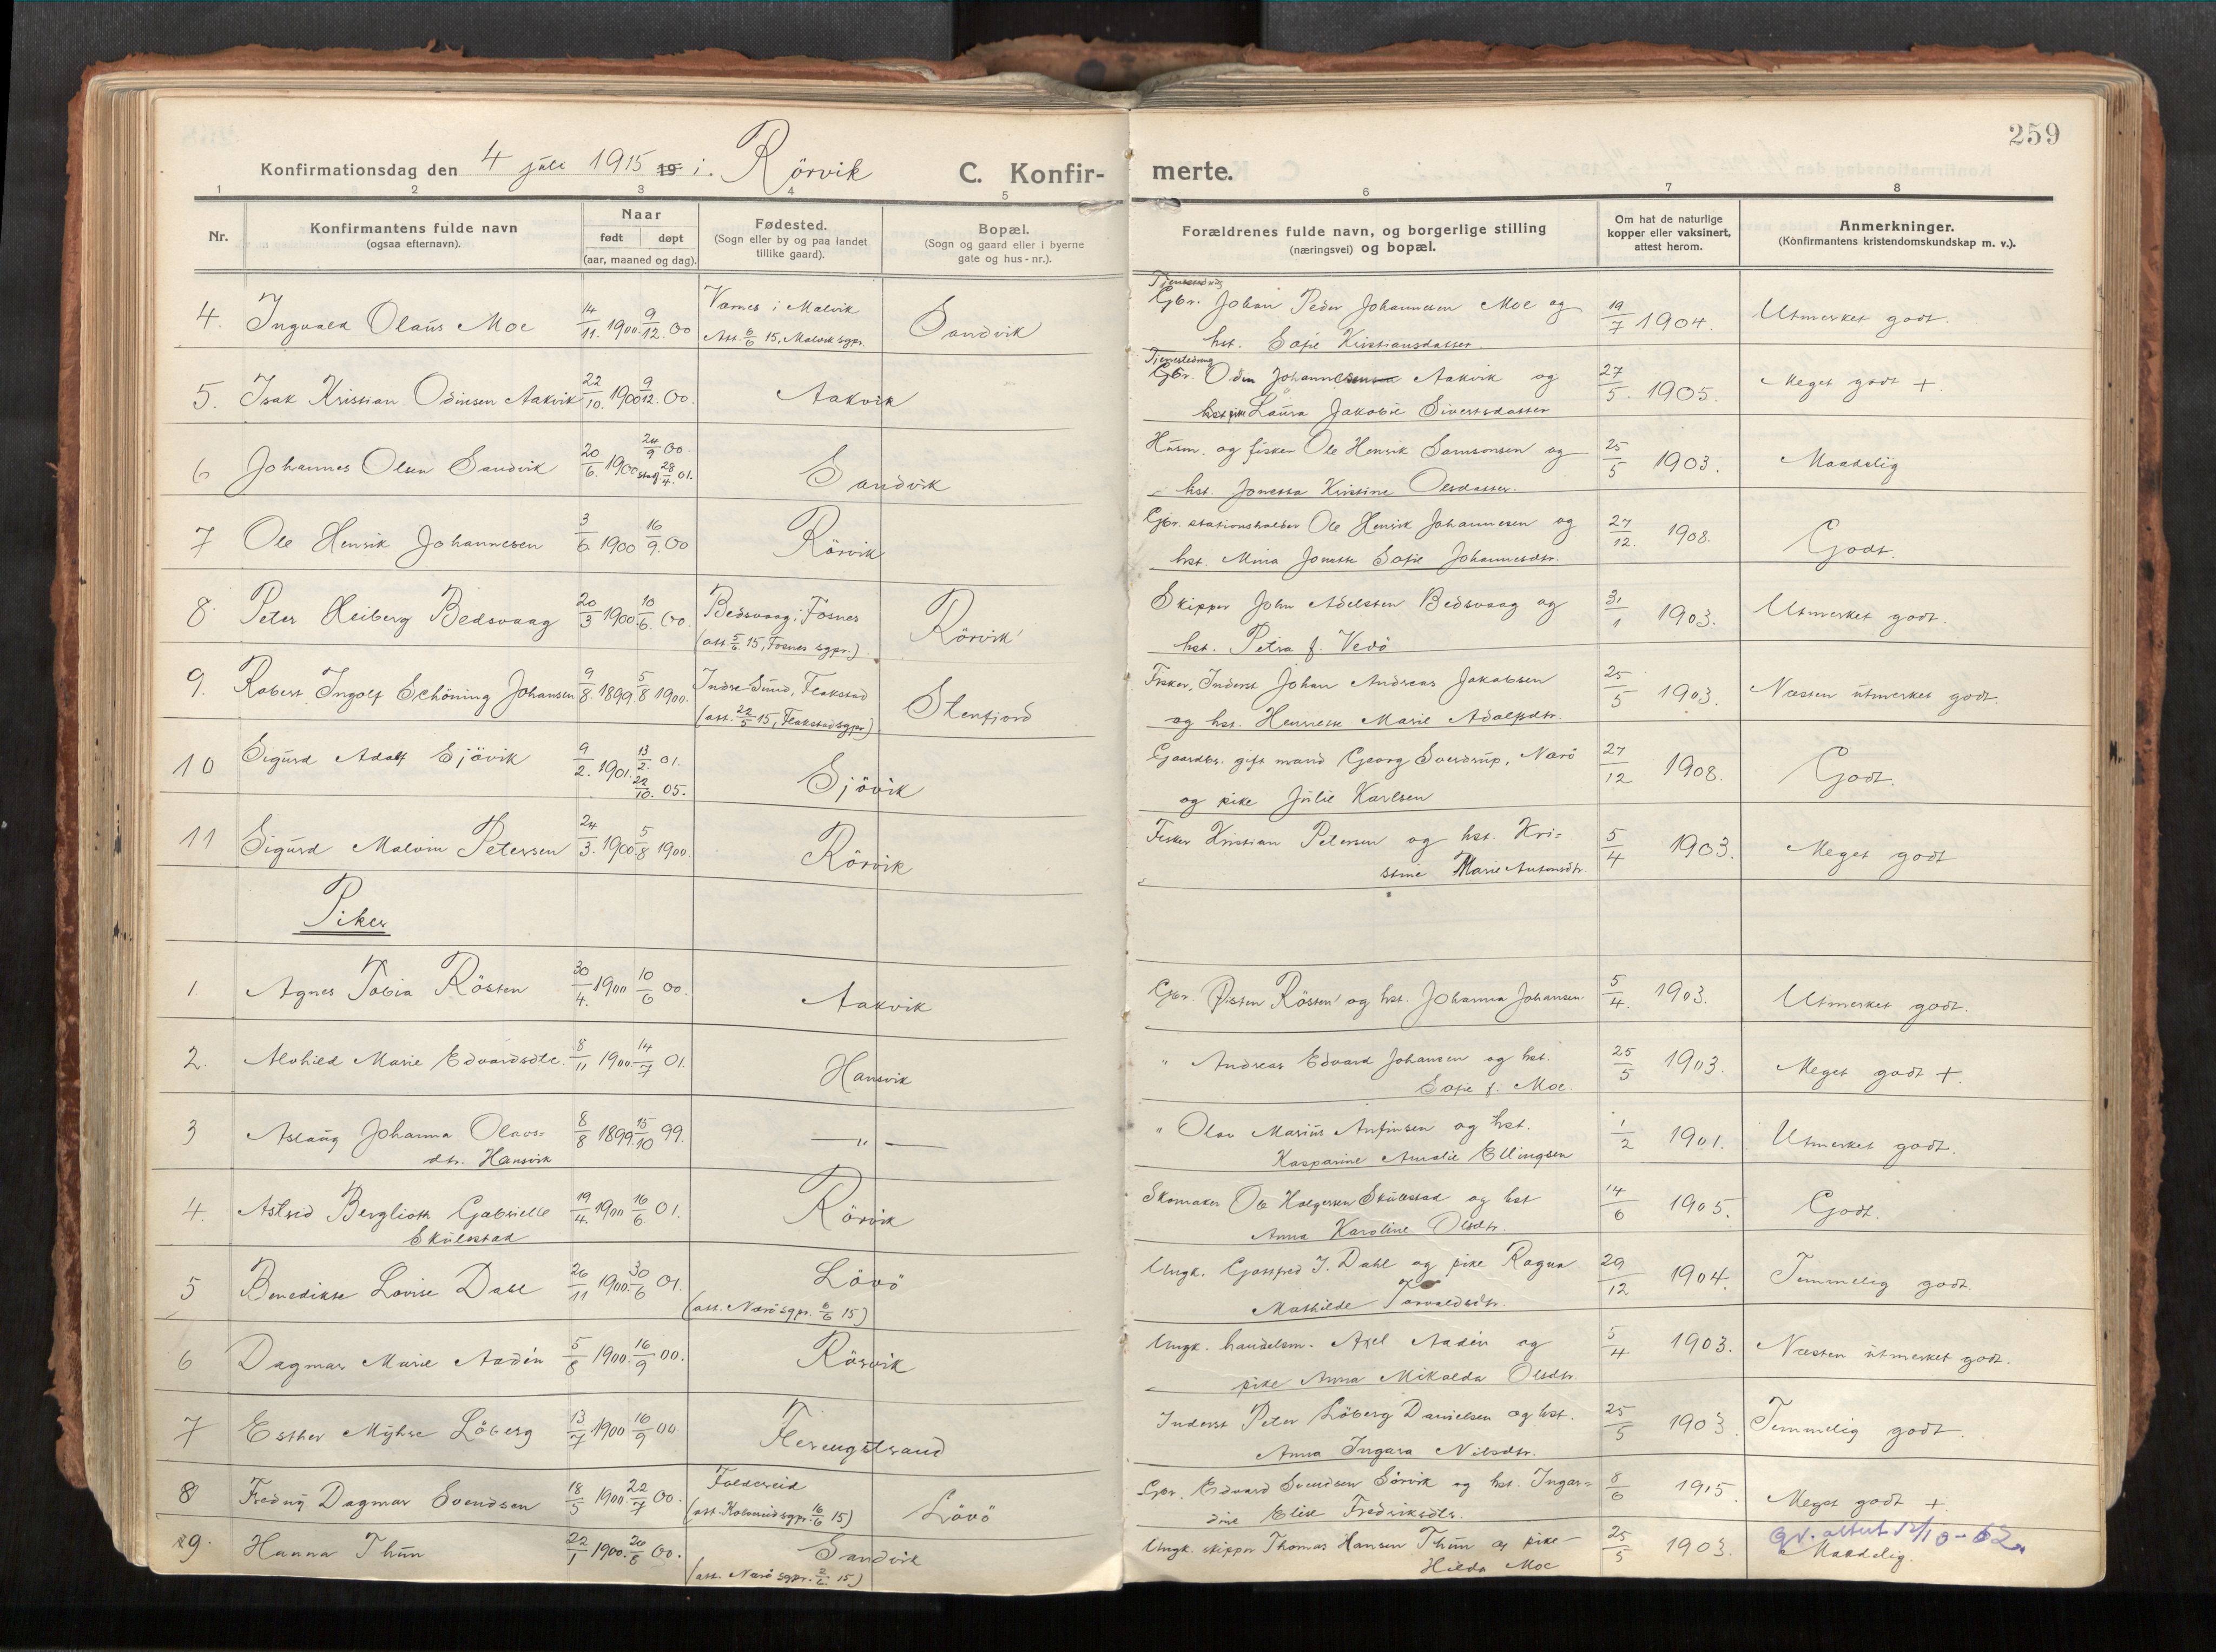 259
Konfirmationsdag den 4 juli 1915 19 i. Rörvik C. Konfir- merte.
1 2 3 4 5 6 7 8
Nr. Konfirmantens fulde navn (ogsaa efternavn). Naar født døpt (aar, maaned og dag). Fødested. (Sogn eller by og paa landet tillike gaard). Bopæl. (Sogn og gaard eller i byerne gate og hus-nr.). Forældrenes fulde navn, og borgerlige stilling (næringsvei) og bopæl. Om hat de naturlige kopper eller vaksinert, attest herom. Anmerkninger. (Konfirmantens kristendomskundskap m. v.).
4. Ingvald Olaus Moe 14/11. 1900. 9/12. 00 Varnes i Malvik Sandvik Gbr. Johan Peder Johannesen Moe og 19/7 1904. Utmerket godt.
Att. 6/6 15, Malvik sgpr. hst. Sofie Kristiansdatter
5. Isak Kristian Odinsen Aakvik 22/10. 1900 9/12. 00. Aakvik Gbr. Odin Johannesen Aakvik og 27/5. 1905. Meget godt +.
pike Laura Jakobie Sivertsdatter
6 Johannes Olsen Sandvik 20/6. 1900 24/9 00. stadf. 28/4. 01. Sandvik Husm. og fisker Ole Henrik Samsonsen og 25/5 1903. Maadelig
hst. Jonetta Kirstine Olsdatter.
7 Ole Henrik Johannesen 3/6 1900 16/9. 00 Rörvik Gbr. stationsholder Ole Henrik Johannesen og 27/12. 1908. Godt.
hst. Mina Jonette Sofie Johannesdtr.
8. Peter Heiberg Bedsvaag 20/3 1900. 10/6. 00. Bedsvaag i Fosnes Rörvik Skipper John Adelsten Bedsvaag og 31/1 1903. Utmerket godt.
(att. 5/6. 15, Fosnes sgpr.) hst. Petra f. Vedö
9. Robert Ingolf Schöning Johansen 9/8 1899. 5/8 1900. Indre Sund, Flakstad Stenfjord Fisker, Inderst Johan Andreas Jakobsen 25/5 1903. Næsten utmerket godt
(att. 22/5 15, Flakstad sgpr) og hst. Henriette Marie Adolfsdtr.
10 Sigurd Adolf Sjövik 9/2. 1901. 13/2. 01. 22/10. 05. Sjövik Gaardbr. gift mand Georg Sverdrup, Nærö 27/12 1908. Godt.
og pike Julie Karlsen
11 Sigurd Malvin Petersen 24/3. 1900. 5/8 1900. Rörvik Fisker Kristian Petersen og hst. Kri- 5/4 1903. Meget godt
stine Marie Antonsdtr.
Piker
1. Agnes Tobia Rösten 30/4. 1900 10/6 00. Aakvik Gbr. Østen Rösten og hst. Johanna Johansen 5/4. 1903. Utmerket godt.
2. Alvhild Marie Edvardsdtr. 8/11 1900. 14/7 01. Hansvik " Andreas Edvard Johansen og hst. 25/5 1903. Meget godt +.
Sofie f. Moe.
3 Aslaug Johanna Olavs- 8/8 1899. 15/10 99. — " — " Olav Marius Anfinsen og hst. 1/2 1901. Utmerket godt.
dtr. Hansvik Kasparine Amalie Ellingsen
4. Astrid Berglioth Gabrielle 19/4. 1900 16/6 01. Rörvik Skomaker Ole Holgersen Skulestad og hst 14/6 1905. Godt.
Skulestad Anna Karoline Olsdtr.
5 Benedikte Lovise Dahl 26/11 1900. 30/6 01. Lövö Ungk. Gottfred J. Dahl og pike Ragna 29/12 1904. Temmelig godt.
(att. Nærö sgpr. 6/6 15) Mathilde Torvaldsdtr.
6 Dagmar Marie Aadén 5/8 1900. 16/9 00. Rörvik Ungk. handelsm. Axel Aadén og 5/4 1903. Næsten utmerket godt.
pike Anna Mikalda Olsdtr.
7 Esther Myhre Löberg 13/7 1900 16/9 00 Ferengstrand Inderst Peter Löberg Danielsen og hst. 25/5 1903. Temmelig godt.
Anna Ingara Nilsdtr.
8 Fredny Dagmar Svendsen 18/5 1900. 22/7 00. Foldereid Lövö Gbr. Edvard Svendsen Sörvik og hst. Ingar- 8/6 1915. Meget godt +
(att. Kolvereid sgpr. 16/6 15) dine Elise Fredriksdtr.
9. Hanna Thun 22/1 1900. 20/6 00. Sandvik Ungk. skipper Thomas Hansen Thun og pike 25/5 1903. Maadelig.
(att. Nærö sgpr. 2/6. 15) Hilda Moe